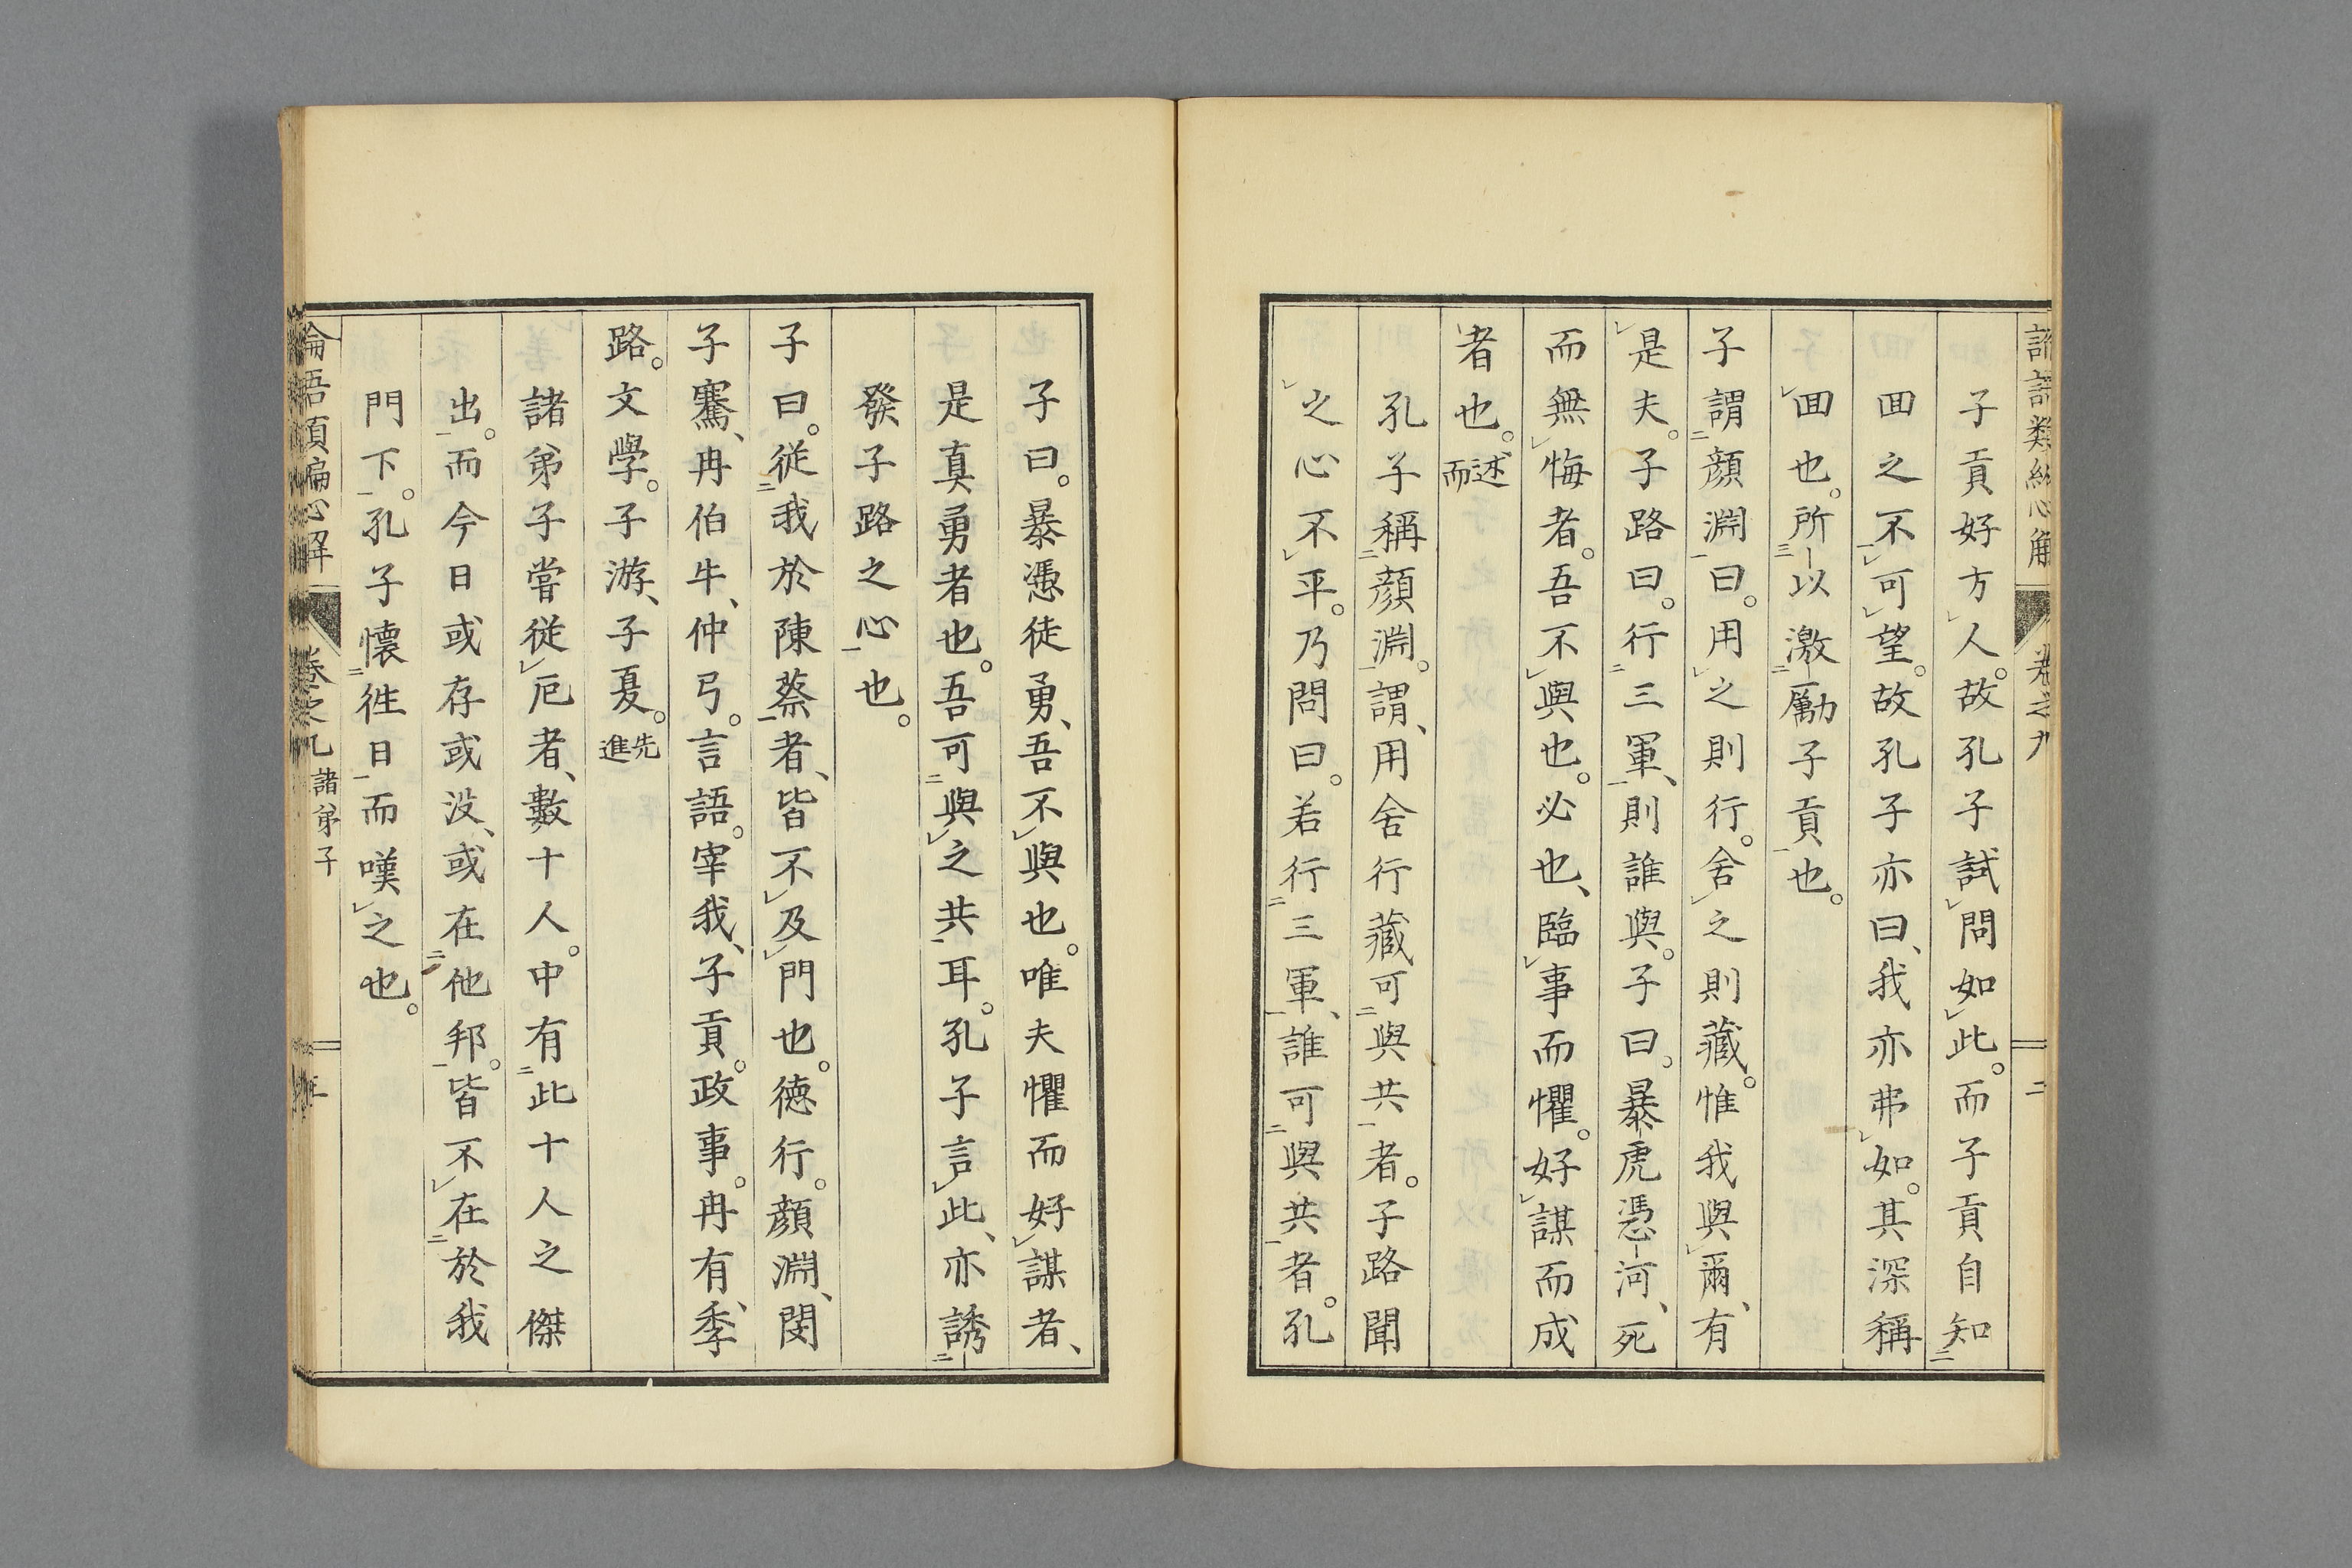 子貢好方人。故孔子試問如此。而子貢自知
回之不可望。故孔子亦曰、我亦弗如。其深稱
回也。所以激勵子貢也。
子謂顔淵曰。用之則行。舍之則藏。惟我與爾、有
是夫。子路曰。行三軍、則誰與。子曰。暴虎憑河、死
而無悔者。吾不與也。必也、臨事而懼。好謀而成
者也。述而
孔子稱顔淵。謂、用舍行藏可與共者。子路聞
之心不平。乃問曰。若行三軍、誰可與共者。孔
子曰。暴憑徒勇、吾不與也。唯夫懼而好謀者、
是真勇者也。吾可與之共耳。孔子言此、亦誘
發子路之心也。
子曰。從我於陳蔡者、皆不及門也。德行。顔淵、閔
子騫、冉伯牛、仲弓。言語。宰我、子貢。政事。冉有、季
路。文學。子游、子夏。先進
諸弟子嘗從厄者、數十人。中有此十人之傑
出。而今日或存或没、或在他邦。皆不在於我
門下。孔子懷徃日而嘆之也。
卷之九 諸弟子